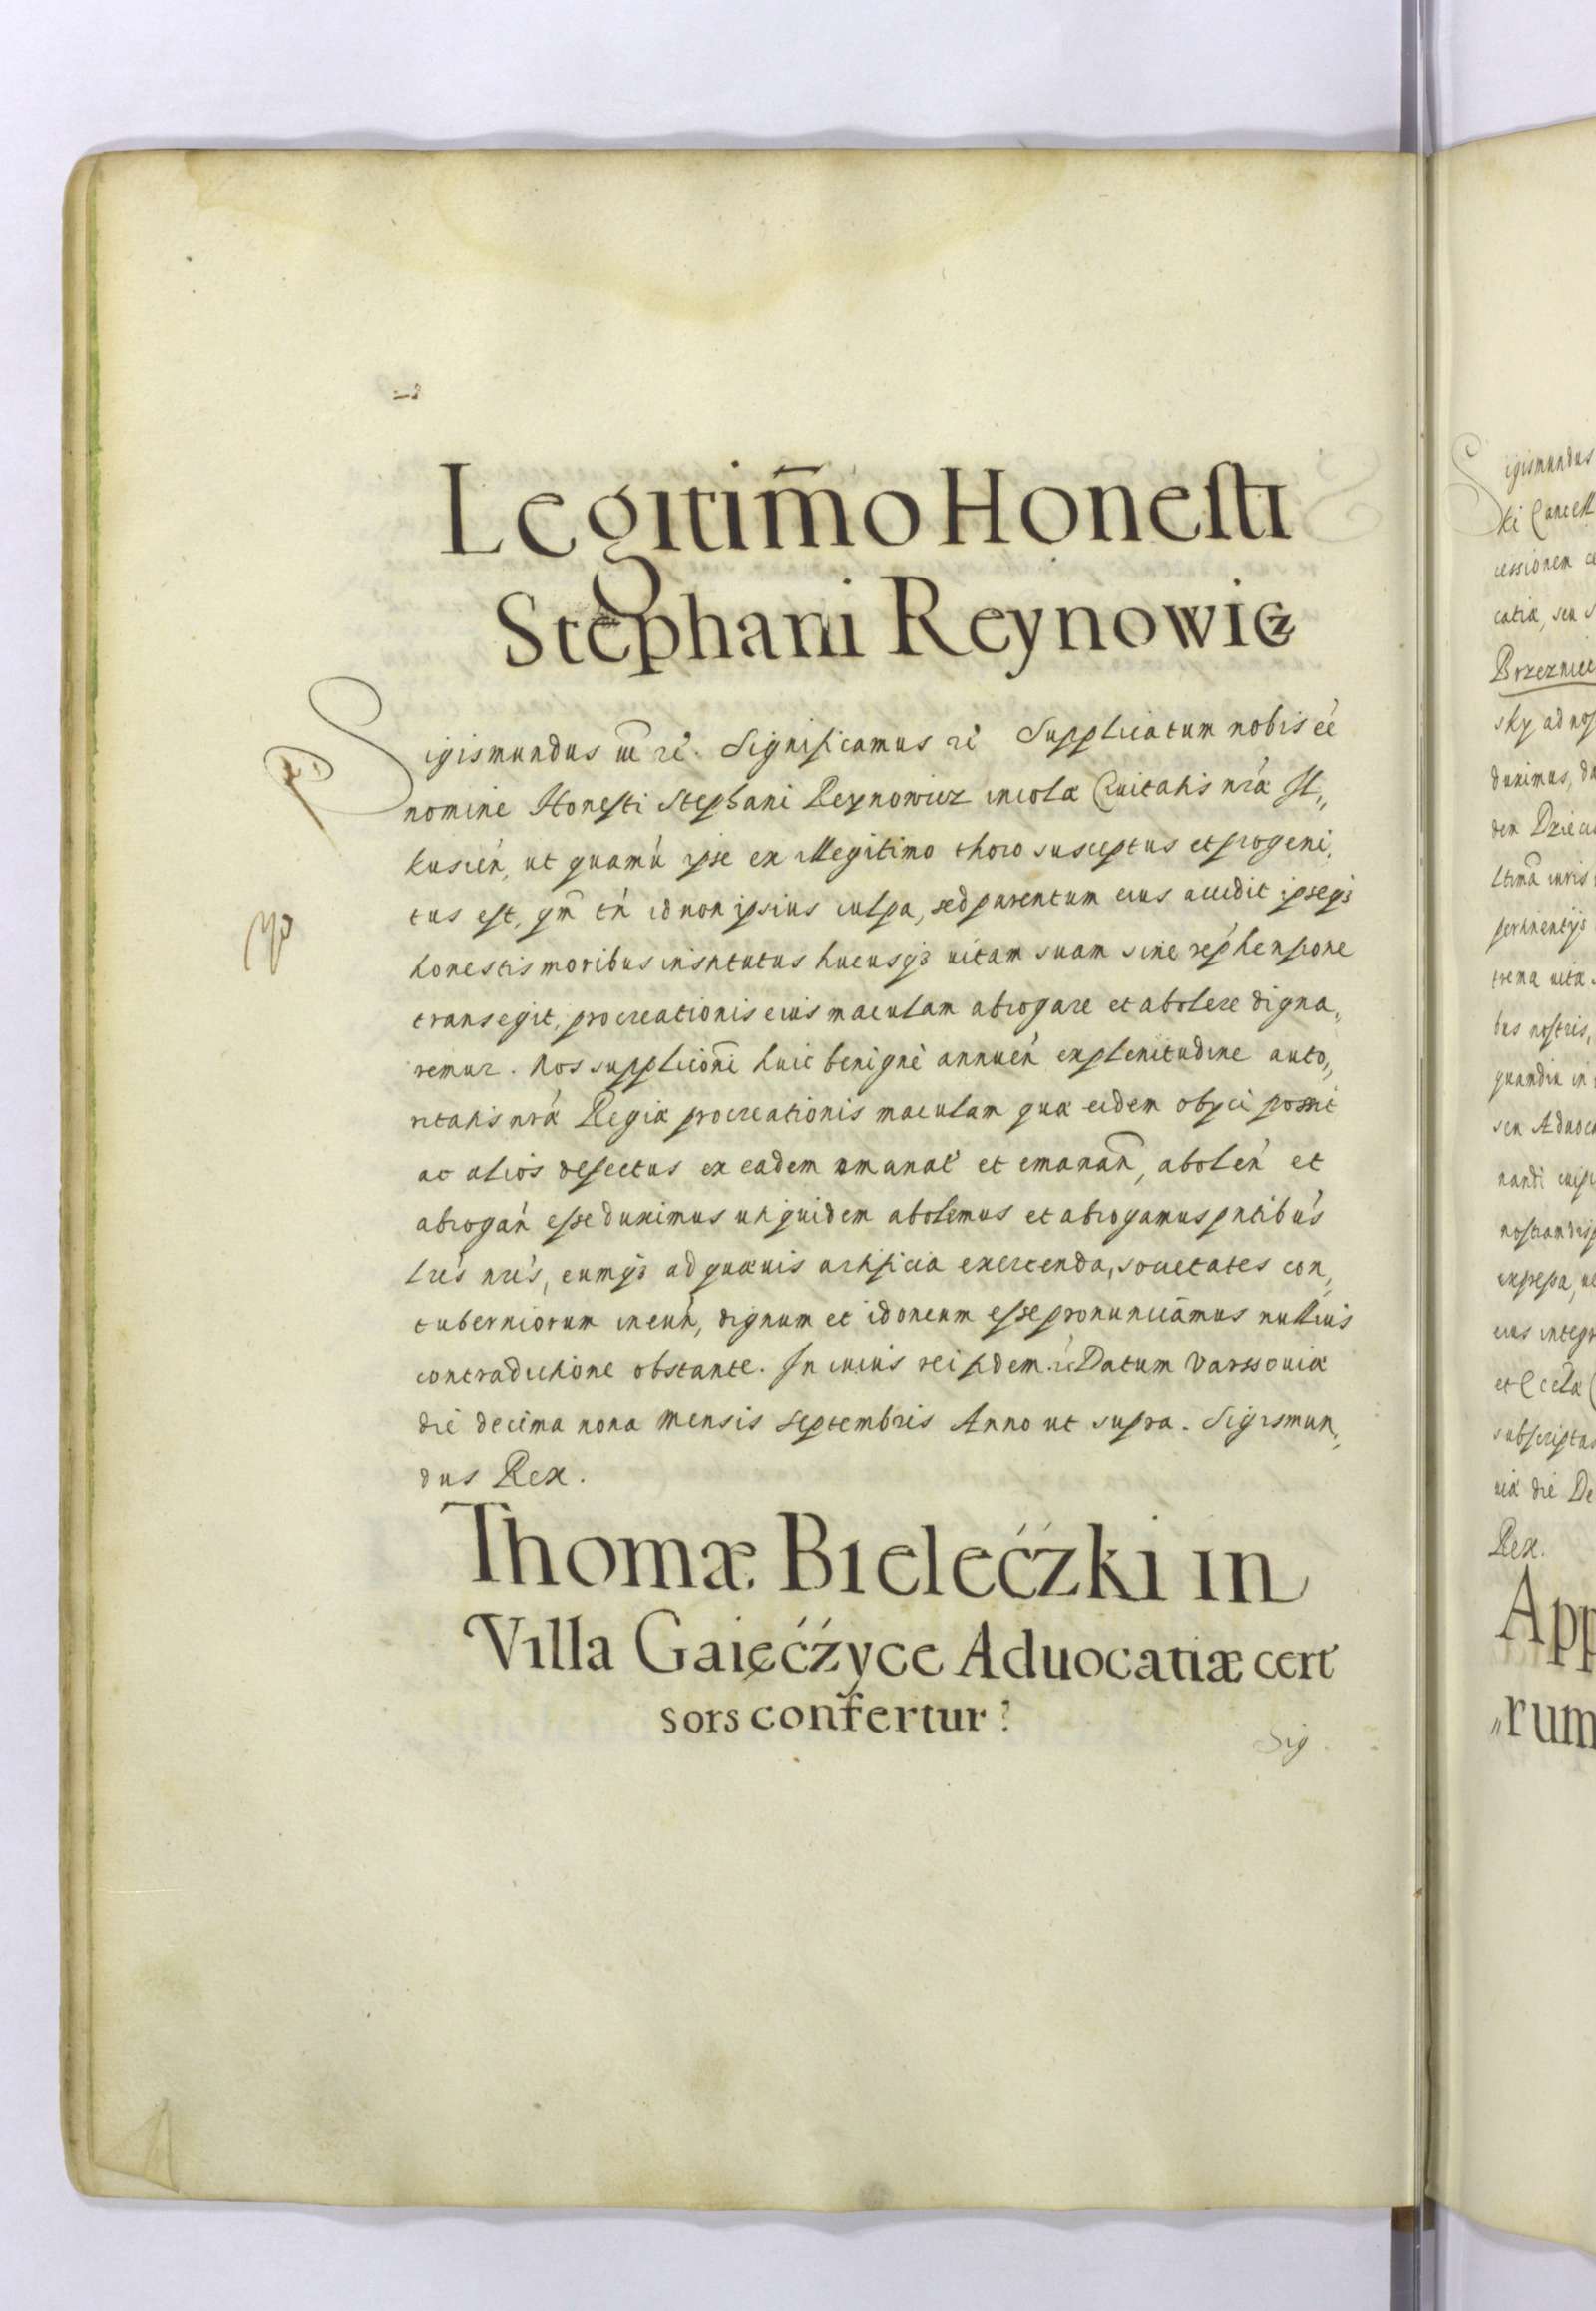 Legitim̃o Honesti
Stephani Reynowicz
Sigismundus iii rc̃. Significamus rc̃ Supplicatum nobis eẽ
nomine Honesti Stephani Reynowicz incolæ Ciuitatis nrã Il„
kusień, ut quamũ ipse ex illegitimo thoro susceptus et progeni„
tus est, qm̃ tñ id non ipsius culpa, sed parentum eius accidit ipseqꝫ
honestis moribus institutus hucusqꝫ uitam suam sine rep̃hensione
transegit, procreationis eius maculam abrogare et abolere digna„
remur. Nos supplicioñi huic benignè annueñ ex plenitudine auto„
ritatis nrã Regiæ procreationis maculam quæ eidem obijci possit
ac alios defectus ex eadem emanat̃ et emanañ, aboleñ et
abrogañ esse duximus uti quidem abolemus et abrogamus pñtibus
lrẽs nrẽs, eumqꝫ ad quæuis artificia exercenda, societates con„
tuberniorum ineuñ, dignum et idoneum esse pronunciamus nullius
contradictione obstante. In cuius rei fidem. rc̃ Datum Varssouiæ
die decima nona Mensis Septembris Anno ut supra. Sigismun„
dus Rex.
Thomæ Bielećzki in
Villa Gaięćźyce Aduocatiæ cert̃
sors confertur
Sig
igismundus
ki Cancell
cessionem
catiæ, seu
Brzeznice
sky ad nos
duximus,
den
iuris
pertinentijs
trema uitæ
bus nostris,
quandiu in
seu Aduoca
nandi
expressa,
eius integr
subscriptus
uiæ die De
Rex.
App
„rum